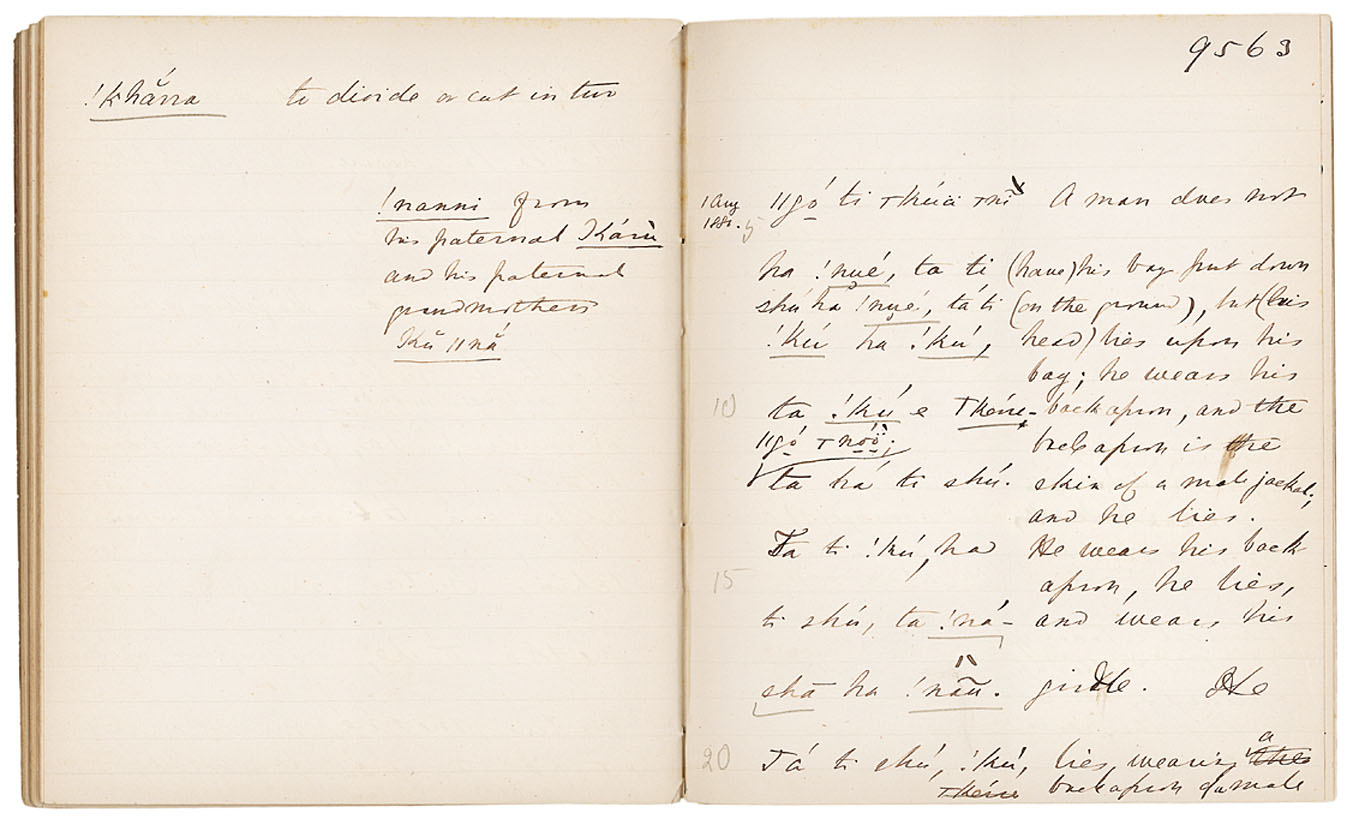 !khărra to divide or cut in two
!nanni from
his paternal Karu
and his paternal
grandmothers
Kŭ ǁnă
9563
1 Aug
1881. 5
ǁgó ti ꞱKúá A man does not
ha !nué, ta ti (have) his bag put down
shú ha !nué, tá ti (on the ground), but (his
!kú ha !kú, head) lies upon his
bag; he wears his
10 ta !kú e Ʇkérre- back apron, and the
ǁgó back apron is the
ta há ti shú. skin of a male jackal;
and he lies.
Ta ti !kú, ha He wears his back
15 apron, he lies,
ti shú, ta !ná- and wears his
shā ha !nãu. girdle. He
a
20 Tá ti shú, !kú, lies, wearing the
back apron of a male